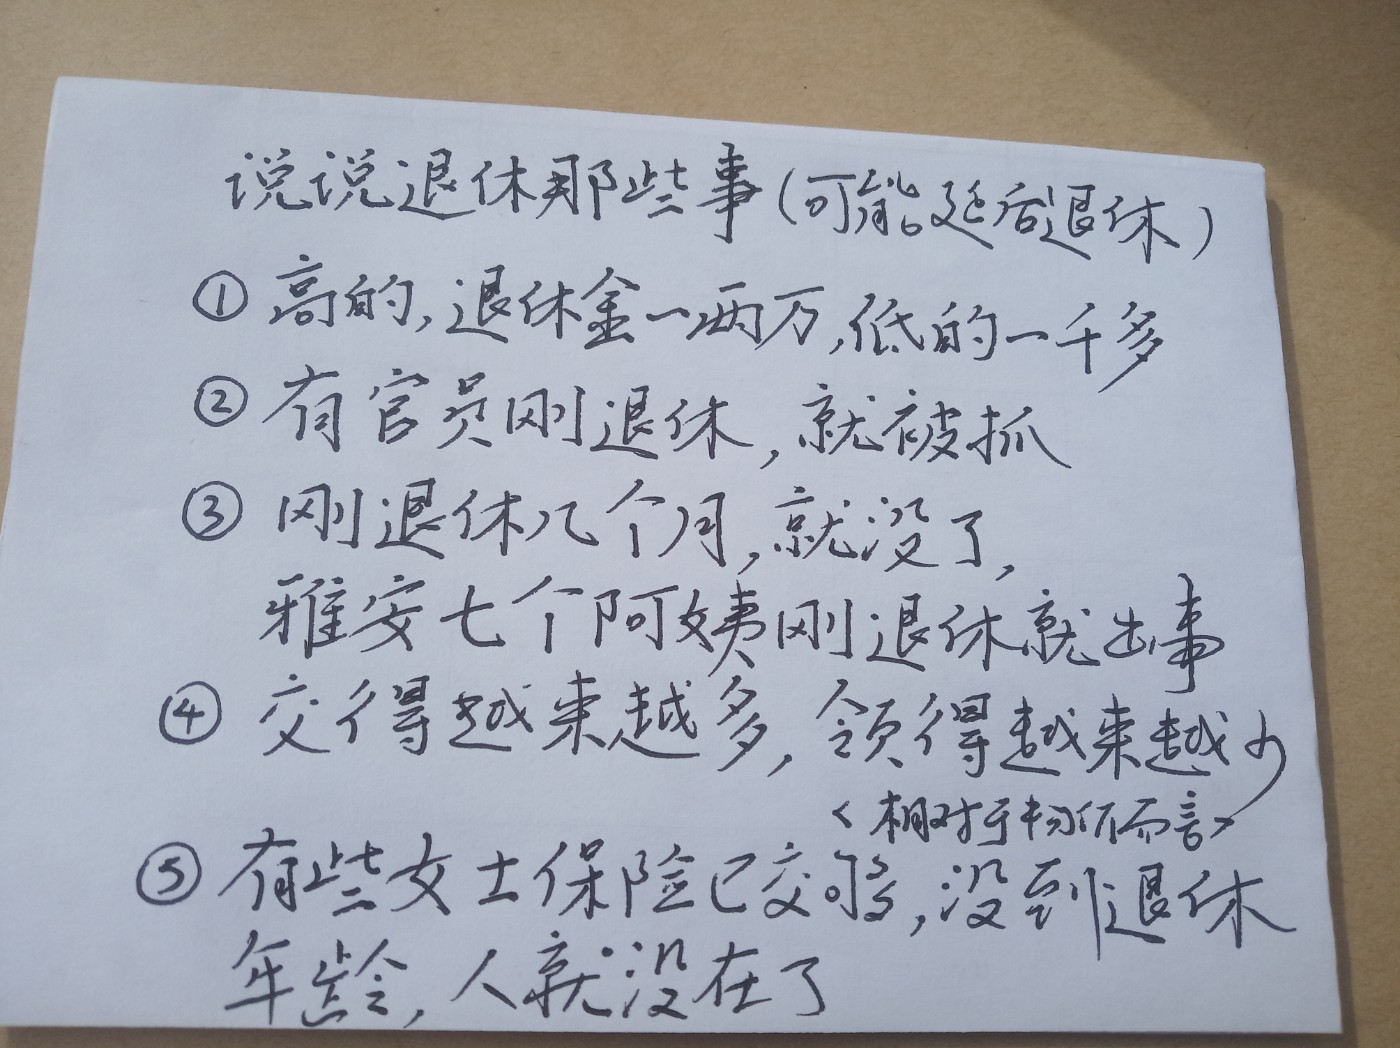 说说退休那些事(可能延后退休)
①高的,退休金一两万,低的一千多
②有官员刚退休,就被抓
③刚退休几个月,就没了,
雅安七个阿姨刚退休就出事
④交得越来越多,领得越来越少
<相对于物价而言>
⑤有些女士保险已交够,没到退休
年龄,人就没在了